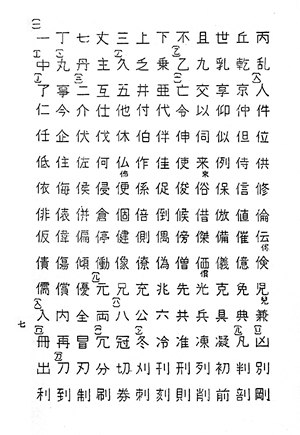 (一)一丁七丈三上下不且世丘丙
(丨)中(丶)丸丹主(丿)久乏乗(乙)乙九乳乾乱
(亅)了事(二)二互五井亜(亠)亡交享京(人)人
仁今介仕他付代令以仰仲件
任企伏伐休伯伴伸伺似但位
低住佐何仏(佛)作佳使来(來)例侍供
依侮侯侵便係促俊俗保信修
俳俵併倉個倍倒候借倣値倫
仮偉偏停健側偶傍傑備催伝(傳)
債傷傾働像僚偽僧価(價)儀億倹(儉)
儒償優(儿)元兄充兆先光克免児(兒)
(入)入内全両(八)八公六共兵具典兼
(冂)冊再冒(冖)冗冠(冫)冬冷准凍凝(几)凡(凵)凶
出(刀)刀刃分切刈刊刑列初判別
利到制刷券刺刻則削前剖剛
七